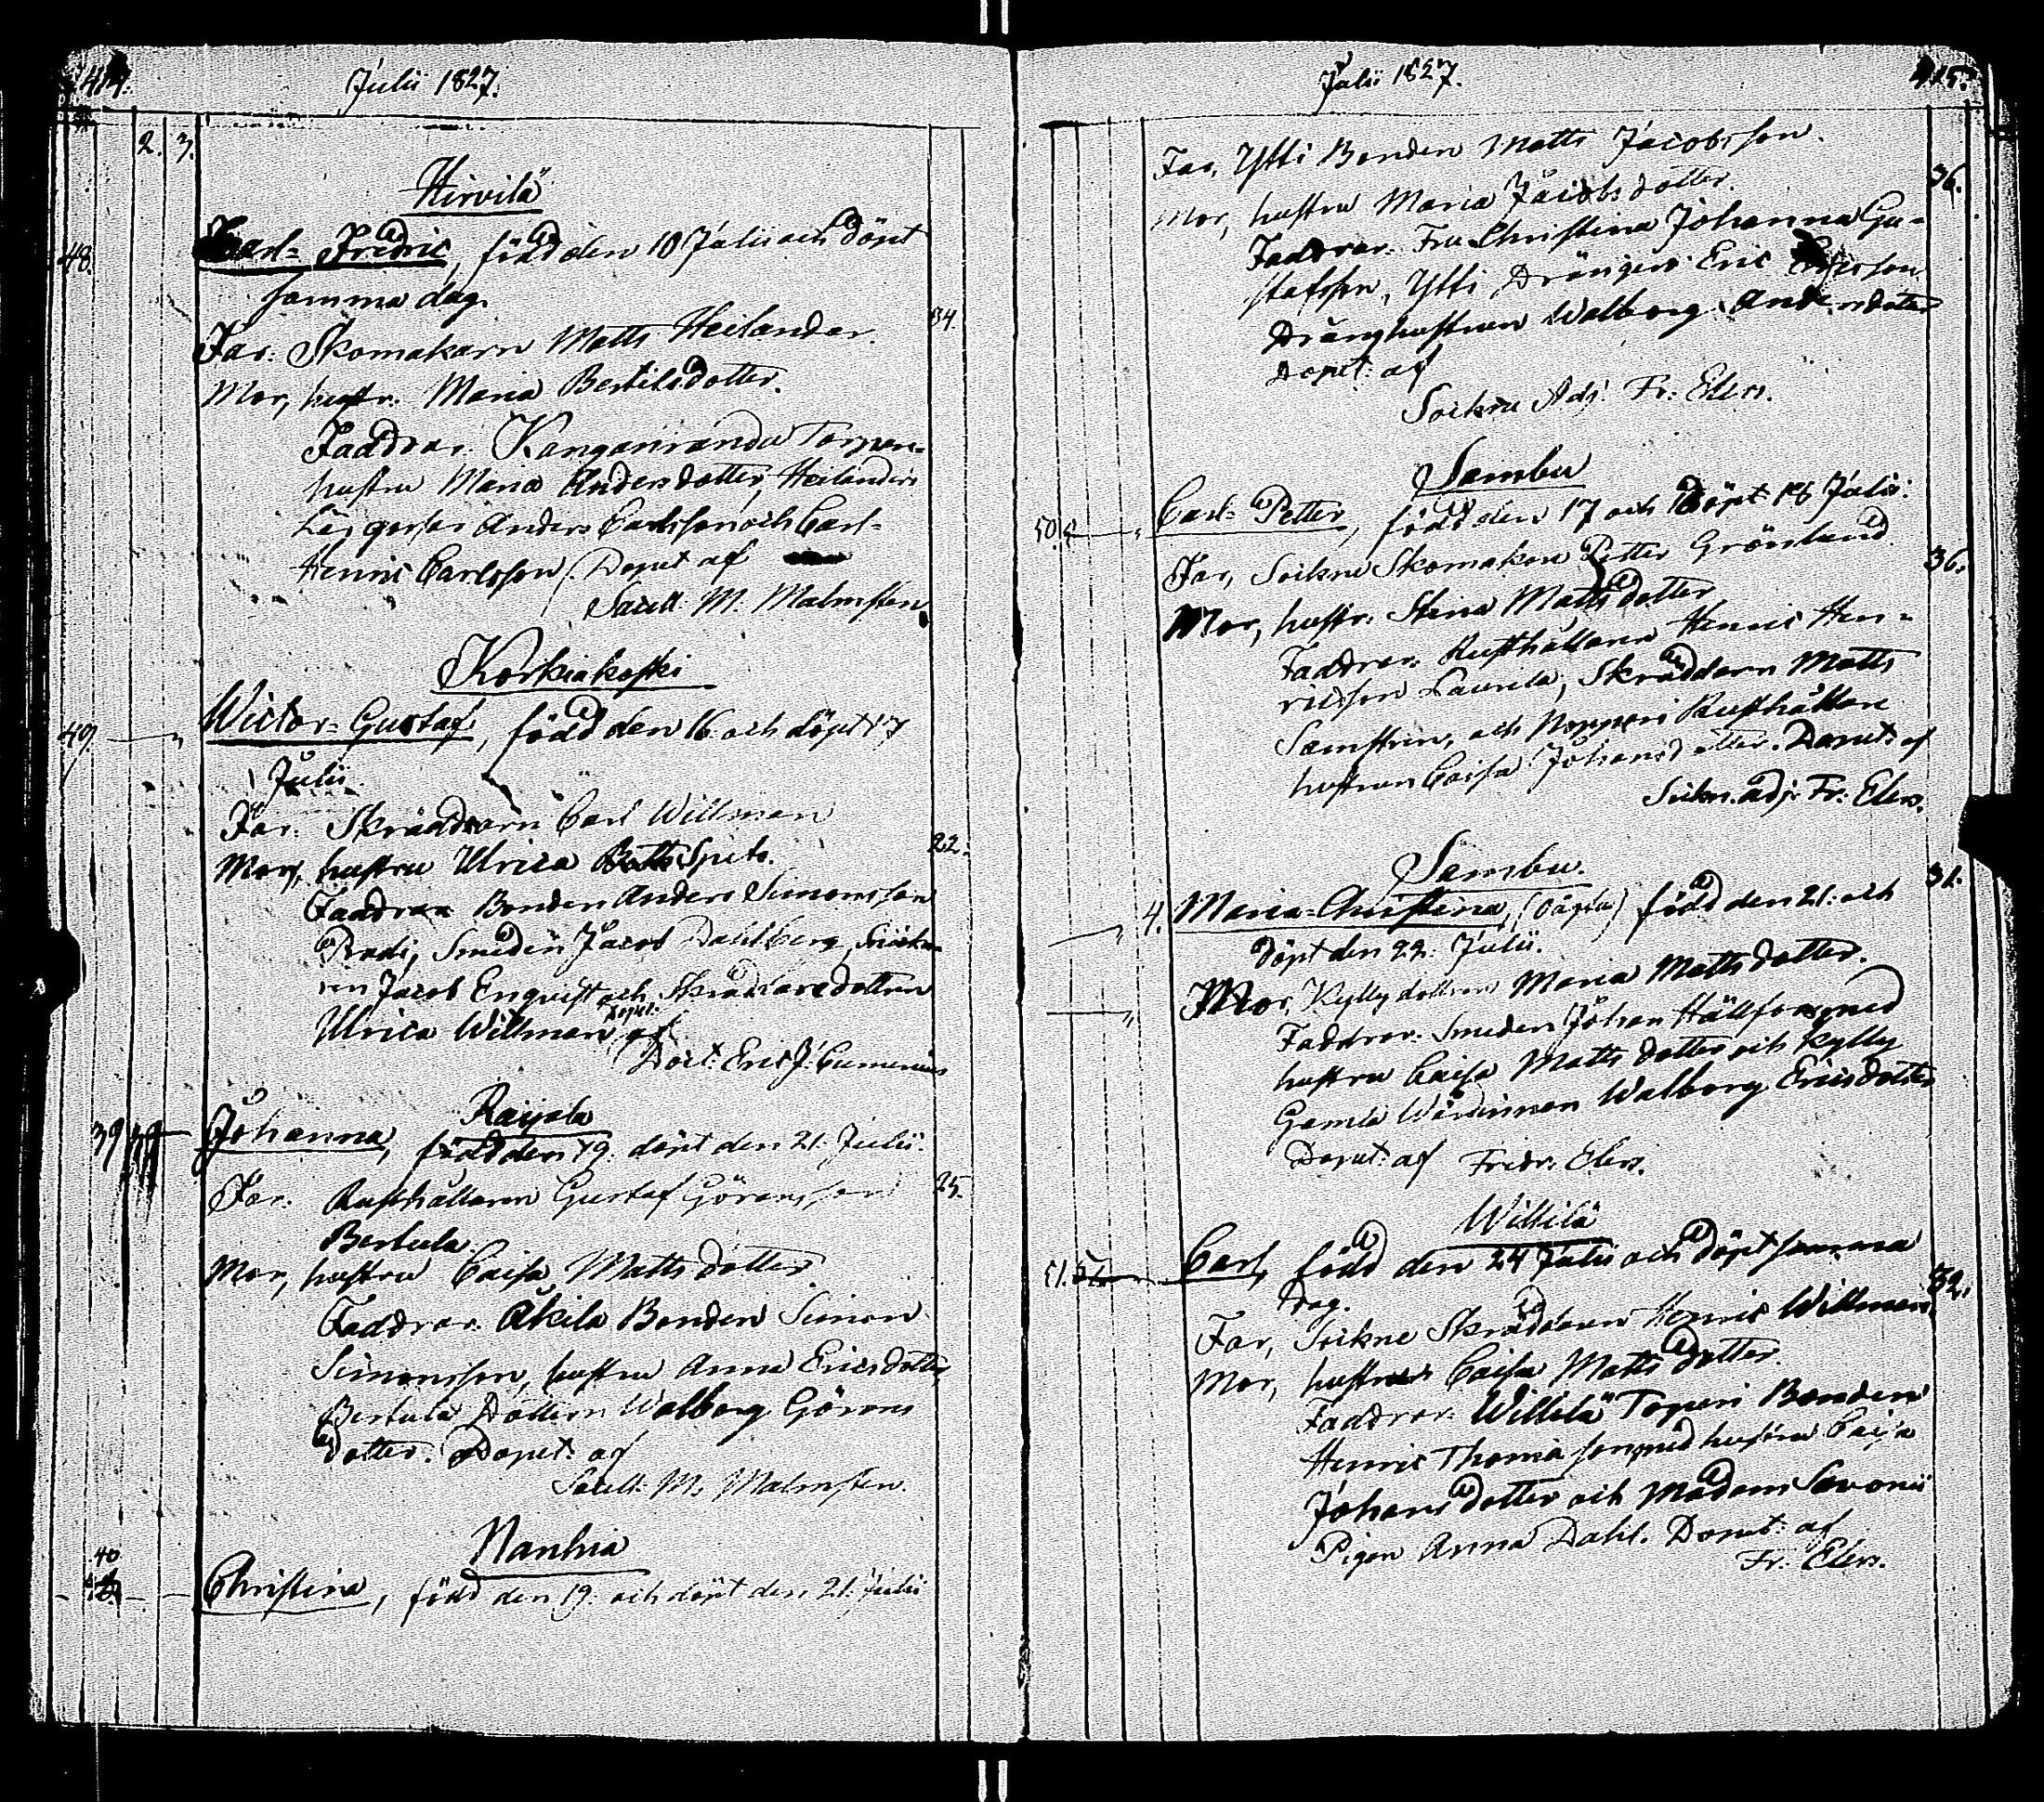 414.
Julii 1827.
2. 3.
Hirvilä
48. Carl-Fredric, född den 10 Julii och döpt
samma dag.
Far: Skomakarn Matts Heilander. 34.
Mor, hustr. Maria Bertilsdotter.
Faddrar: Kanganranda Torpare-
hustru Maria Andersdotter, Heilanders
Anders Carlsson och Carl-
Henric Carlsson. Döpt af
Sacell: M. Malmsten.
Korkiakoski
49. Wictor-Gustaf, född den 16 och döpt 17
Julii.
Far: Skräddarn Carl Willman
Mor, hustru Ulrica Spets. 22.
Faddrar Bonden Anders Simonsson
Pradi, Smeden Jacob Dahlberg,
Jacob Enqvist och Skräddaredottren
Ulrica Willman Döpt: af
Doct: Eric J: Cumenius
Raijala
39 Johanna, född den 19. döpt den 21. Julii.
Far: Rusthållaren Gustaf Göransson 25.
Bertula.
Mor, hustru Caisa Mattsdotter
Faddrar: Äkilä Bonden Simon
Simonsson, hustru Anna Ericsdotter,
Bertula Dottern Walborg Görans
dotter. Döpt: af
Sacell: M. Malmsten.
Nanhia
40 Christina, född den 19. och döpt den 21. Julii
Julii 1827.
415.
Far, Ytti Bonden Matts Jacobsson.
Mor, hustru Maria Jacobsdotter. 36.
Faddrar: Fru Christina Johanna Gu-
stafsson, Ytti Drängen Eric Ericsson
Dränghustrun Walborg Andersdotter
Döpt: af
Sockne Adj. Fr: Elers.
Sambu
50. Carl-Petter, född den 17 och döpt 18 Julii.
Far, Sockne Skomakare Petter Grönlund. 36.
Mor, hustr: Stina Mattsdotter
Faddrar: Rusthållaren Henric Hen-
ricsson Laurila, Skräddarn Matts
Samstrin, och Nopperi Rusthållare
hustrun Caisa Johansdotter. Döpt: af
Sockn. adj. Fr: Elers.
Sambu.
4. Maria-Christina, (oägta) född den 21. och 31.
döpt den 22. Julii.
Mor, Kylly dottren Maria Mattsdotter.
Faddrar: Smeden Johan Hällfors med
hustru Caisa Mattsdotter och Kylly
Gamla Wärdinnan Walborg Ericsdotter
Döpt: af Fredr: Elers.
Willilä
51. Carl, född den 24 Julii och döpt samma
dag. 32.
Far, Sockne Skräddaren Henric Willman,
Mor, hustru Caisa Mattsdotter.
Faddrar: Willilä Toperi Bonden
Henric Thomasson med hustru Caisa
Johansdotter och Madam Savonii
Pigan Anna Dahl. Döpt: af
Fr: Elers.